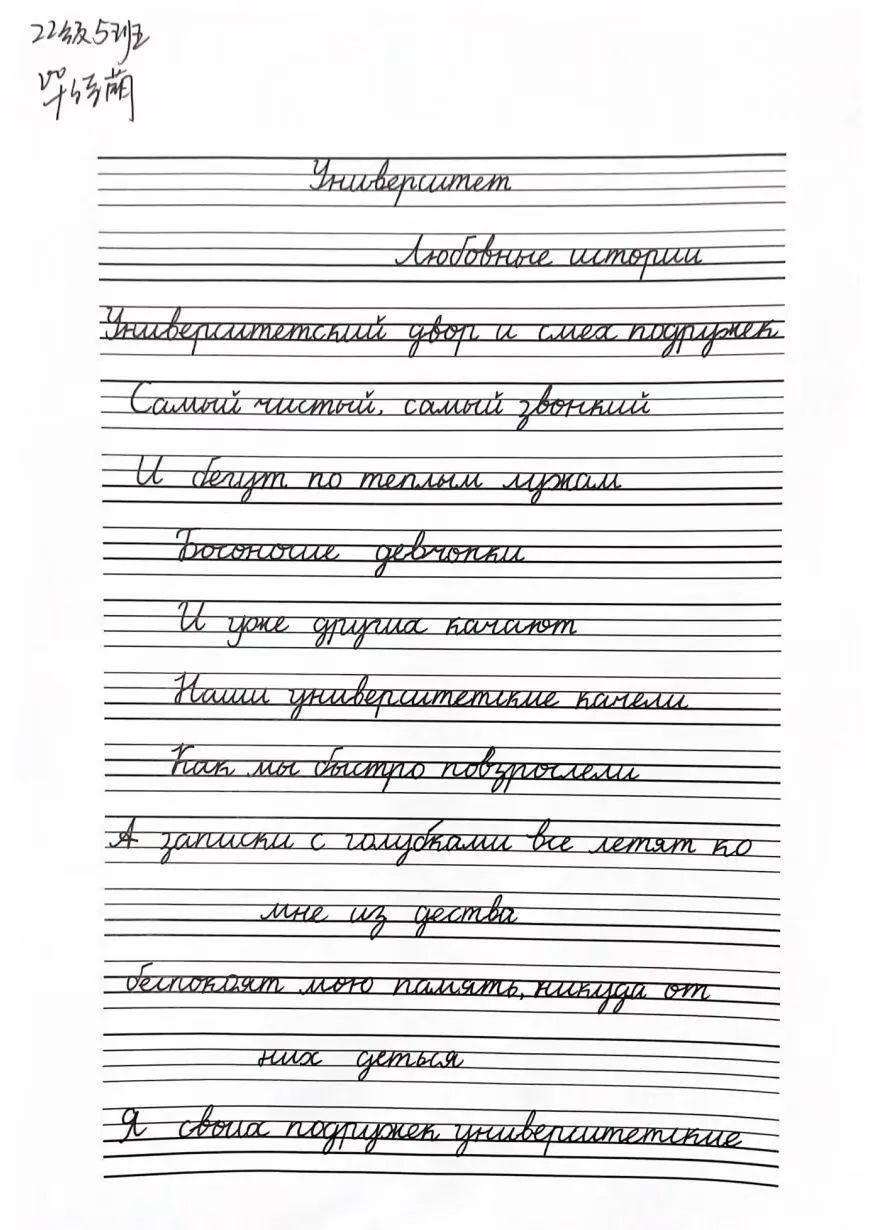 22级5班
Университет
Любовные истории
Университетский двор и смех подружек
Самый чистый, самый звонкий
И бегут по теплым лужам
Босоногие девчонки
И уже других качают
Наши университетские качели
Как мы быстро повзрослели
А записки с голубками все летят ко
мне из дества
беспокоят мою память, никуда от
них деться
Я своих подружек университетские